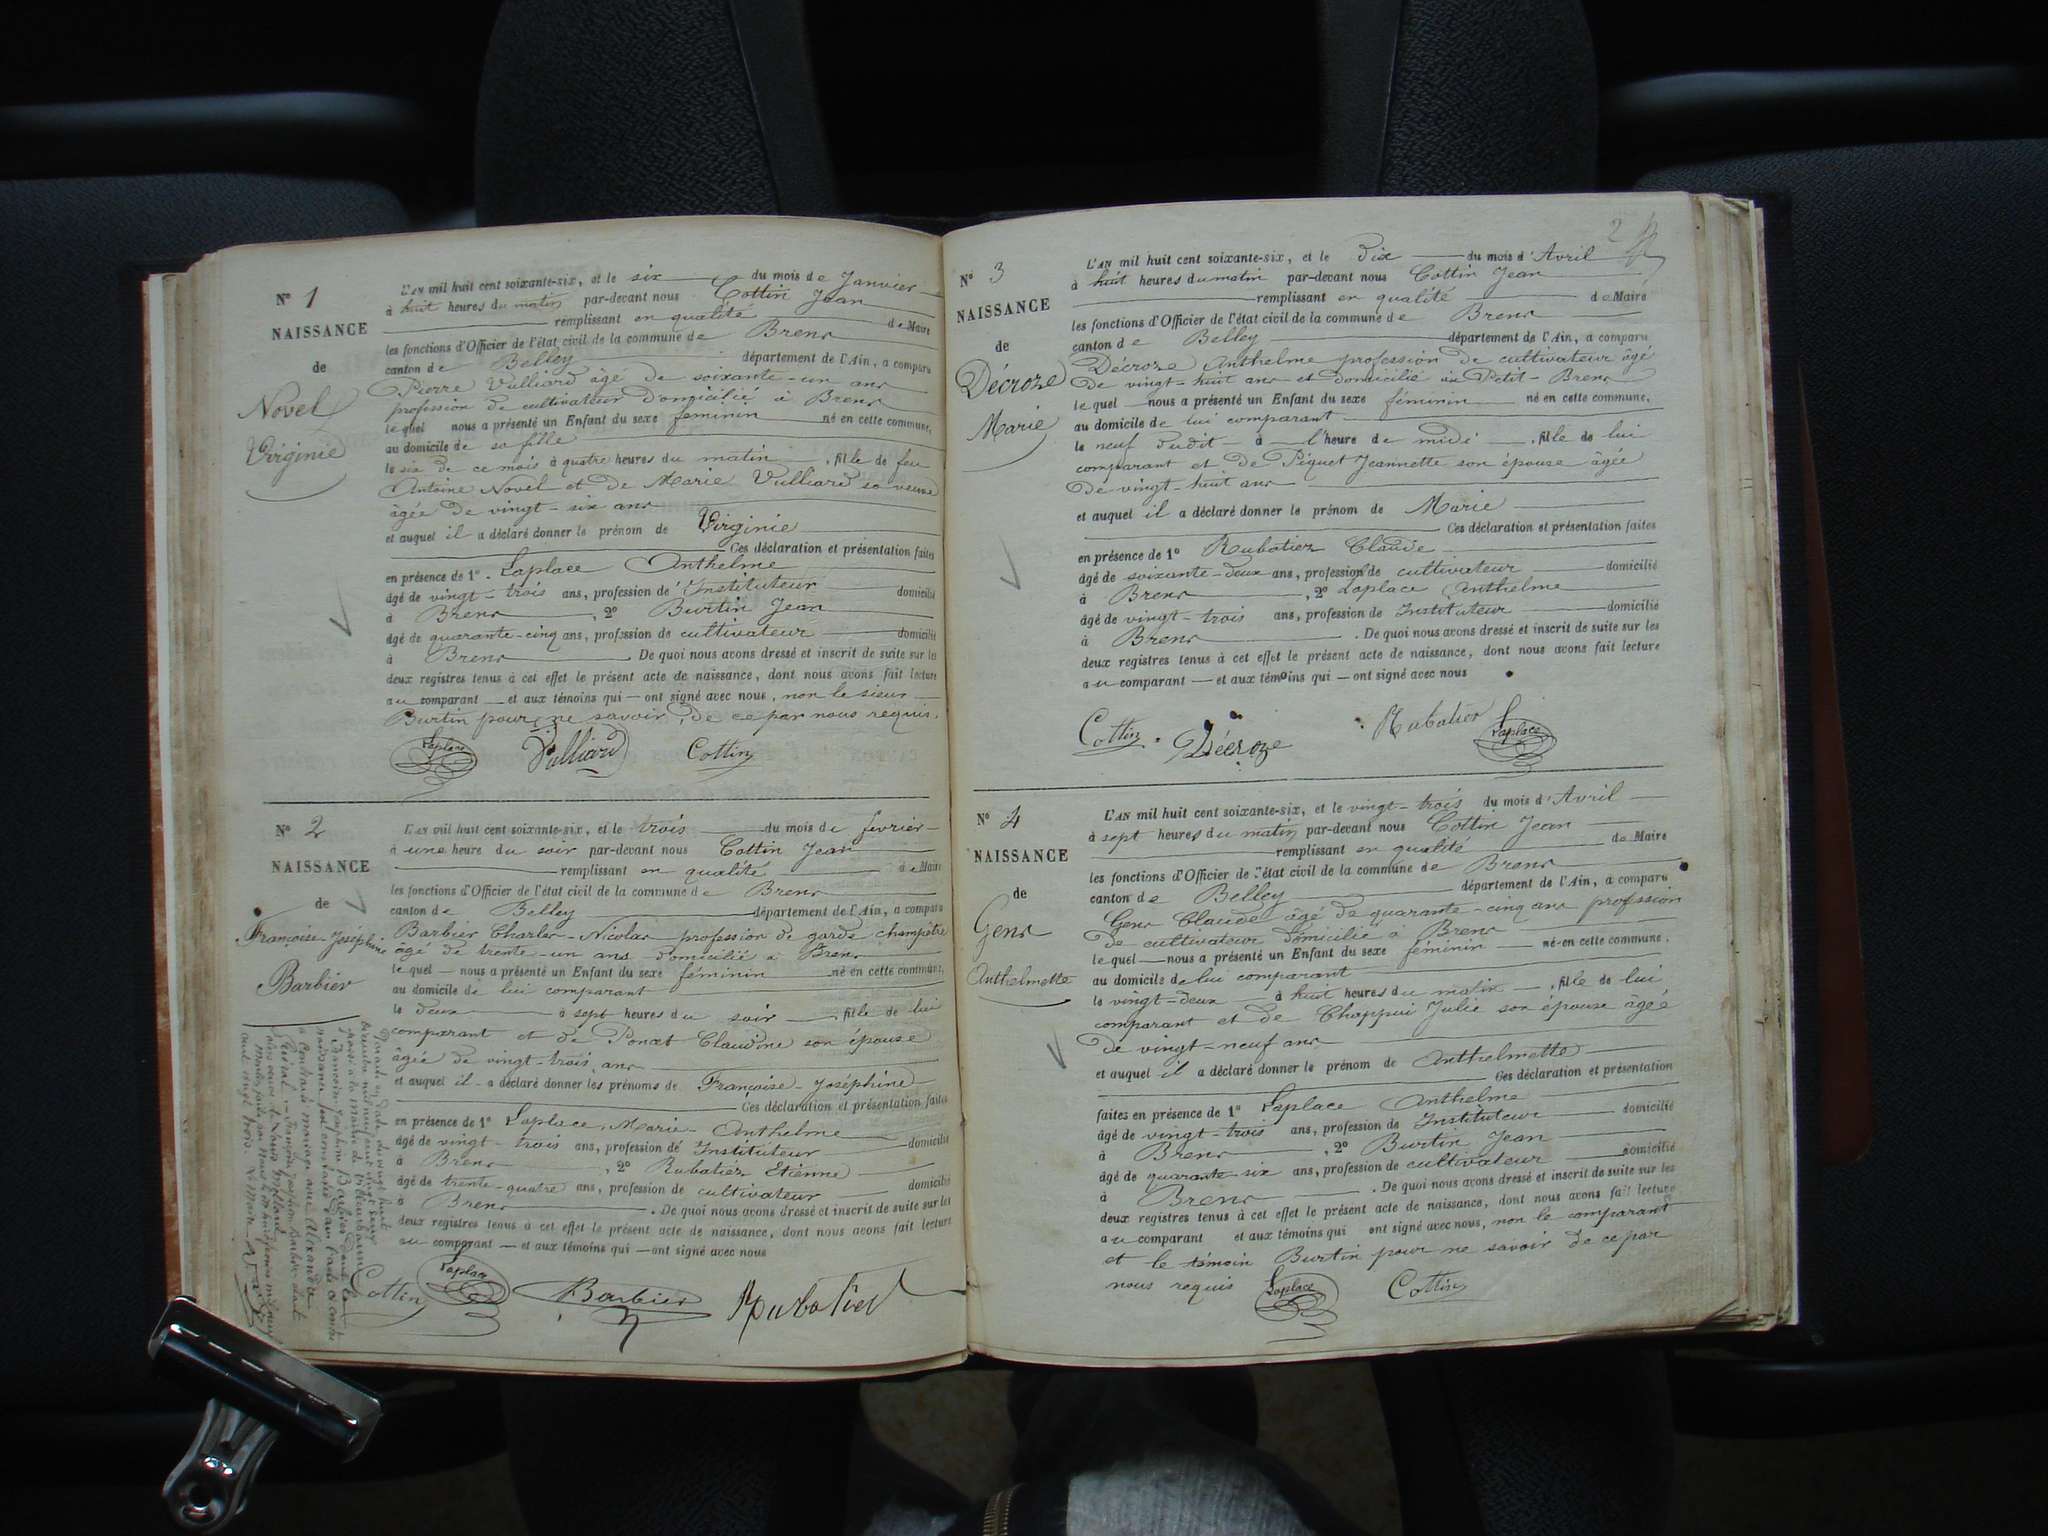 N° 1
NAISSANCE
de
Novel
Virginie
L'AN mil huit cent soixante-six, et le six du mois de Janvier
à huit heures du matin par-devant nous Cottin Jean
remplissant en qualité de Maire
les fonctions d'Officier de l'état civil de la commune de Brens
canton de Belley département de l'Ain, a comparu
Pierre Vulliard âgé de soixante-un ans
profession de cultivateur domicilié à Brens
lequel nous a présenté un Enfant du sexe féminin né en cette commune,
au domicile de sa fille
le six de ce mois à quatre heures du matin, fille de feu
Antoine Novel et de Marie Vulliard sa veuve
âgée de vingt-six ans
et auquel il a déclaré donner le prénom de Virginie
Ces déclaration et présentation faites
en présence de 1° Laplace Anthelme
âgé de vingt-trois ans, profession d'Instituteur domicilié
à Brens, 2° Burtin Jean
âgé de quarante-cinq ans, profession de cultivateur domicilié
à Brens. De quoi nous avons dressé et inscrit de suite sur les
deux registres tenus à cet effet le présent acte de naissance, dont nous avons fait lecture
au comparant et aux témoins qui ont signé avec nous, non le sieur
Burtin pour ne savoir, de ce par nous requis.
Laplace Vulliard Cottin
N° 2
NAISSANCE
de
Françoise Joséphine
Barbier
L'AN mil huit cent soixante-six, et le trois du mois de février
à une heure du soir par-devant nous Cottin Jean
remplissant en qualité de Maire
les fonctions d'Officier de l'état civil de la commune de Brens
canton de Belley département de l'Ain, a comparu
Barbier Charles-Nicolas profession de garde champêtre
âgé de trente-un ans domicilié à Brens
lequel nous a présenté un Enfant du sexe féminin né en cette commune,
au domicile de lui comparant
le deux à sept heures du soir, fille de lui
comparant et de Poncet Claudine son épouse
âgée de vingt-trois ans
et auquel il a déclaré donner les prénoms de Françoise-Joséphine
Ces déclaration et présentation faites
en présence de 1° Laplace, Marie-Anthelme
âgé de vingt-trois ans, profession de Instituteur domicilié
à Brens, 2° Rubatier Etienne
âgé de trente-quatre ans, profession de cultivateur domicilié
à Brens. De quoi nous avons dressé et inscrit de suite sur les
deux registres tenus à cet effet le présent acte de naissance, dont nous avons fait lecture
au comparant et aux témoins qui ont signé avec nous
Cottin Laplace Barbier Rubatier
2
N° 3
NAISSANCE
de
Décroze
Marie
L'AN mil huit cent soixante-six, et le Dix du mois d'Avril
à huit heures du matin par-devant nous Cottin Jean
remplissant en qualité de Maire
les fonctions d'Officier de l'état civil de la commune de Brens
canton de Belley département de l'Ain, a comparu
Décroze Anthelme profession de cultivateur âgé
de vingt-huit ans et domicilié au Petit-Brens
lequel nous a présenté un Enfant du sexe féminin né en cette commune,
au domicile de lui comparant
le neuf dudit à l'heure de midi, fille de lui
comparant et de Piquet Jeannette son épouse âgée
de vingt-huit ans
et auquel il a déclaré donner le prénom de Marie
Ces déclaration et présentation faites
en présence de 1° Rubatier Claude
âgé de soixante-deux ans, profession de cultivateur domicilié
à Brens, 2° Laplace Anthelme
âgé de vingt-trois ans, profession de Instituteur domicilié
à Brens. De quoi nous avons dressé et inscrit de suite sur les
deux registres tenus à cet effet le présent acte de naissance, dont nous avons fait lecture
au comparant et aux témoins qui ont signé avec nous
Cottin Décroze Rubatier Laplace
N° 4
NAISSANCE
de
Gens
Anthelmette
L'AN mil huit cent soixante-six, et le vingt-trois du mois d'Avril
à sept heures du matin par-devant nous Cottin Jean
remplissant en qualité de Maire
les fonctions d'Officier de l'état civil de la commune de Brens
canton de Belley département de l'Ain, a comparu
Gens Claude âgé de quarante-cinq ans profession
de cultivateur domicilié à Brens
lequel nous a présenté un Enfant du sexe féminin né en cette commune,
au domicile de lui comparant
le vingt-deux à huit heures du matin, fille de lui
comparant et de Chappui Julie son épouse âgée
de vingt-neuf ans
et auquel il a déclaré donner le prénom de Anthelmette
Ces déclaration et présentation
faites en présence de 1° Laplace Anthelme
âgé de vingt-trois ans, profession de Instituteur domicilié
à Brens, 2° Burtin Jean
âgé de quarante-six ans, profession de cultivateur domicilié
à Brens. De quoi nous avons dressé et inscrit de suite sur les
deux registres tenus à cet effet le présent acte de naissance, dont nous avons fait lecture
au comparant et aux témoins qui ont signé avec nous, non le comparant
et le témoin Burtin pour ne savoir de ce par
nous requis Laplace Cottin